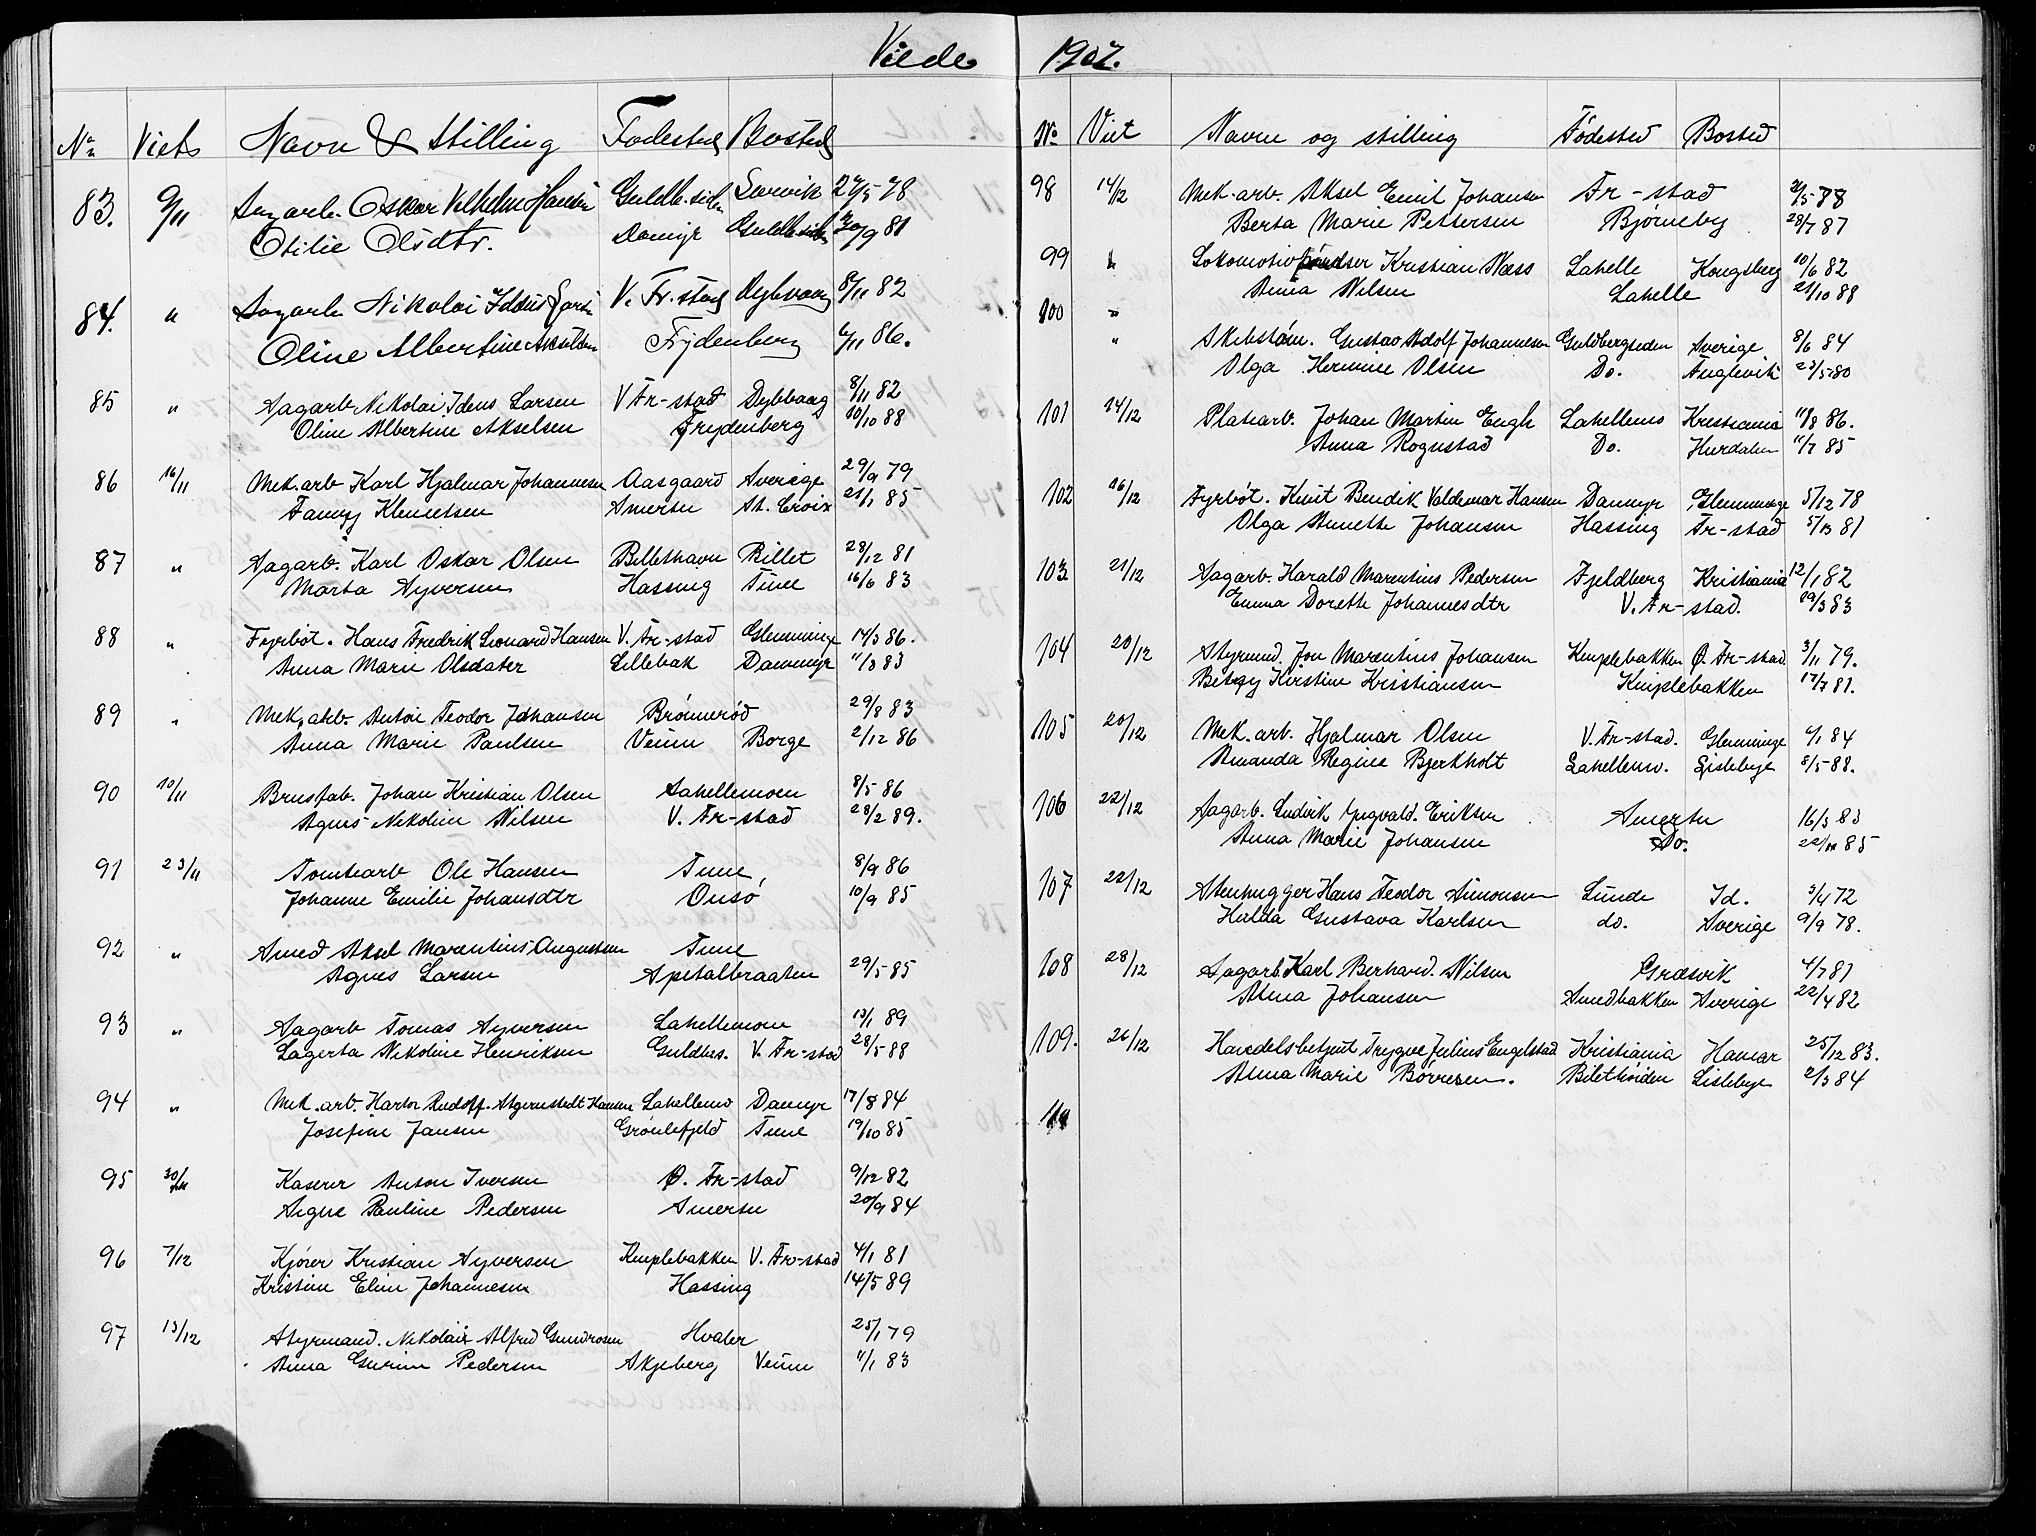 Viede 1907.
No Viets Navn & Stilling Fødested Bosted
83. 9/11 Sagarb. Oskar Vilhelm Hansen Guldb.siden Lervik 27/5 78
Otilie Olsdtr. Dammyr Guldb.siden 9 81
84. " Sagarb Nikolai V. Fr.stad Dybvaag 8/11 82
Oline Albertine Akselsen Frydenberg 6/11 86.
85 " Sagarb Nikolai Idens Larsen V Fr-stad Dybvaag 8/11 82
Oline Albertine Akselsen Frydenberg 10/10 88
86 16/11 Mek.arb Karl Hjalmar Johannesen Aasgaard Sverige 29/9 79
Fanny Klemetsen Smertu St. Croix 21/1 85
87 " Sagarb. Karl Oskar Olsen Billethavn Rillet 28/12 81
Marta Syversen Hassing Tune 16/6 83
88 " Fyrbøt. Hans Fredrik Leonard Hansen V. Fr-stad Glemminge 14/3 86.
Anna Marie Olsdater Lillebak Dammyr 11/3 83
89 " Mek.arb. Anton Teodor Johansen Brønnerød 29/8 83
Anna Marie Paulsen Veum Borge 2/12 86
90 10/11 Brusfab. Johan Kristian Olsen Sahellemoen 8/5 86
Agnes Nikoline Nilsen V. Fr-stad 28/2 89.
91 23/11 Tomtearb Ole Hansen Tune, 8/9 86
Johanne Emilie Johansdtr Onsø 10/9 85
92 " Smed Aksel Marentius Augustsen Tune
Agnes Larsen Spetalbraaten 29/5 85
93 " Sagarb Tomas Syversen Lahellemoen 13/1 89
Lagerta Nikoline Henriksen Guldbgs. V. Fr-stad 28/5 88
94 " Mek.arb. Hartor Rudolf Hansen Lahellemo Dammyr 17/8 84
Josefine Jansen Grønlifjeld Tune 19/10 85
95 30/11 Kaserer Anton Iversen Ø. Fr-stad 9/12 82
Signe Pauline Pedersen Smertu 20/9 84
96 7/12 Kjører Kristian Syversen Kniplebakken V. Fr-stad 4/1 81
Kristine Eline Johannesen Hassing 14/5 89
97 13/12 Styrmand. Nikolai Alfred Gundrosen Hvaler 25/1 79
Anna Gurine Pedersen Skjeberg Veum 11/1 83
No Viet Navn og stilling Fødested Bosted
98 14/12 Mek.arb. Aksel Emil Johansen Fr-stad 5 88
Berta Marie Pettersen Bjørneby 28/7 87
99 " Lokomotivpudser Kristian Næss Lahelle Kongsberg 10/6 82
Anna Nilsen Lahelle 21/10 88
100 "
" Skibstøm. Gustav Adolf Johannesen Guldbergsiden Sverige 8/6 84
Olga Hermine Olsen Do. Fuglevik 23/5 80
101 14/12 Platearb. Johan Martin Engh Lahellemo Kristiania 11/8 86.
Anna Rognstad Do. Hurdalen 11/7 85
102 16/12 Fyrbøt. Knut Bendik Valdemar Hansen Dammyr Glemminge 5/12 78
Olga Annette Johansen Hassing Fr-stad 81
103 21/12 Sagarb. Harald Marentius Pedersen Fjeldberg Kristiania 12/1 82
Emma Dorette Johannesdtr V. Fr-stad. 19/3 83
104 20/12 Styrmd. Jon Marentius Johansen Kniplebakken Ø. Fr-stad 3/11 79.
Betsy Kirstine Kristiansen Kniplebakken 17/7 81.
105 20/12 Mek.arb. Hjalmar Olsen V. Fr-stad. Glemminge 6/1 84
Amanda Regine Bjerkholt Lahellemo. Lislebye 8/5 88.
106 22/12 Sagarb. Ludvik Yngvald. Eriksen Smertu 16/3 83
Anna Marie Johansen Do. 85
107 22/12 Stenhugger Hans Teodor Simonsen Lunde Id. 3/4 72
Hulda Gustava Karlsen do. Sverige 9/9 78.
108 28/12 Sagarb. Karl Berhard. Nilsen Græsvik 4/7 81
Alma Johansen Smedbakken Sverige 22/4 82
109. 26/12 Handelsbetjent Trygve Julius Engelstad Kristiania Hamar 25/12 83.
Anna Marie Børresen. Bilethøiden Lislebye 2/3 84